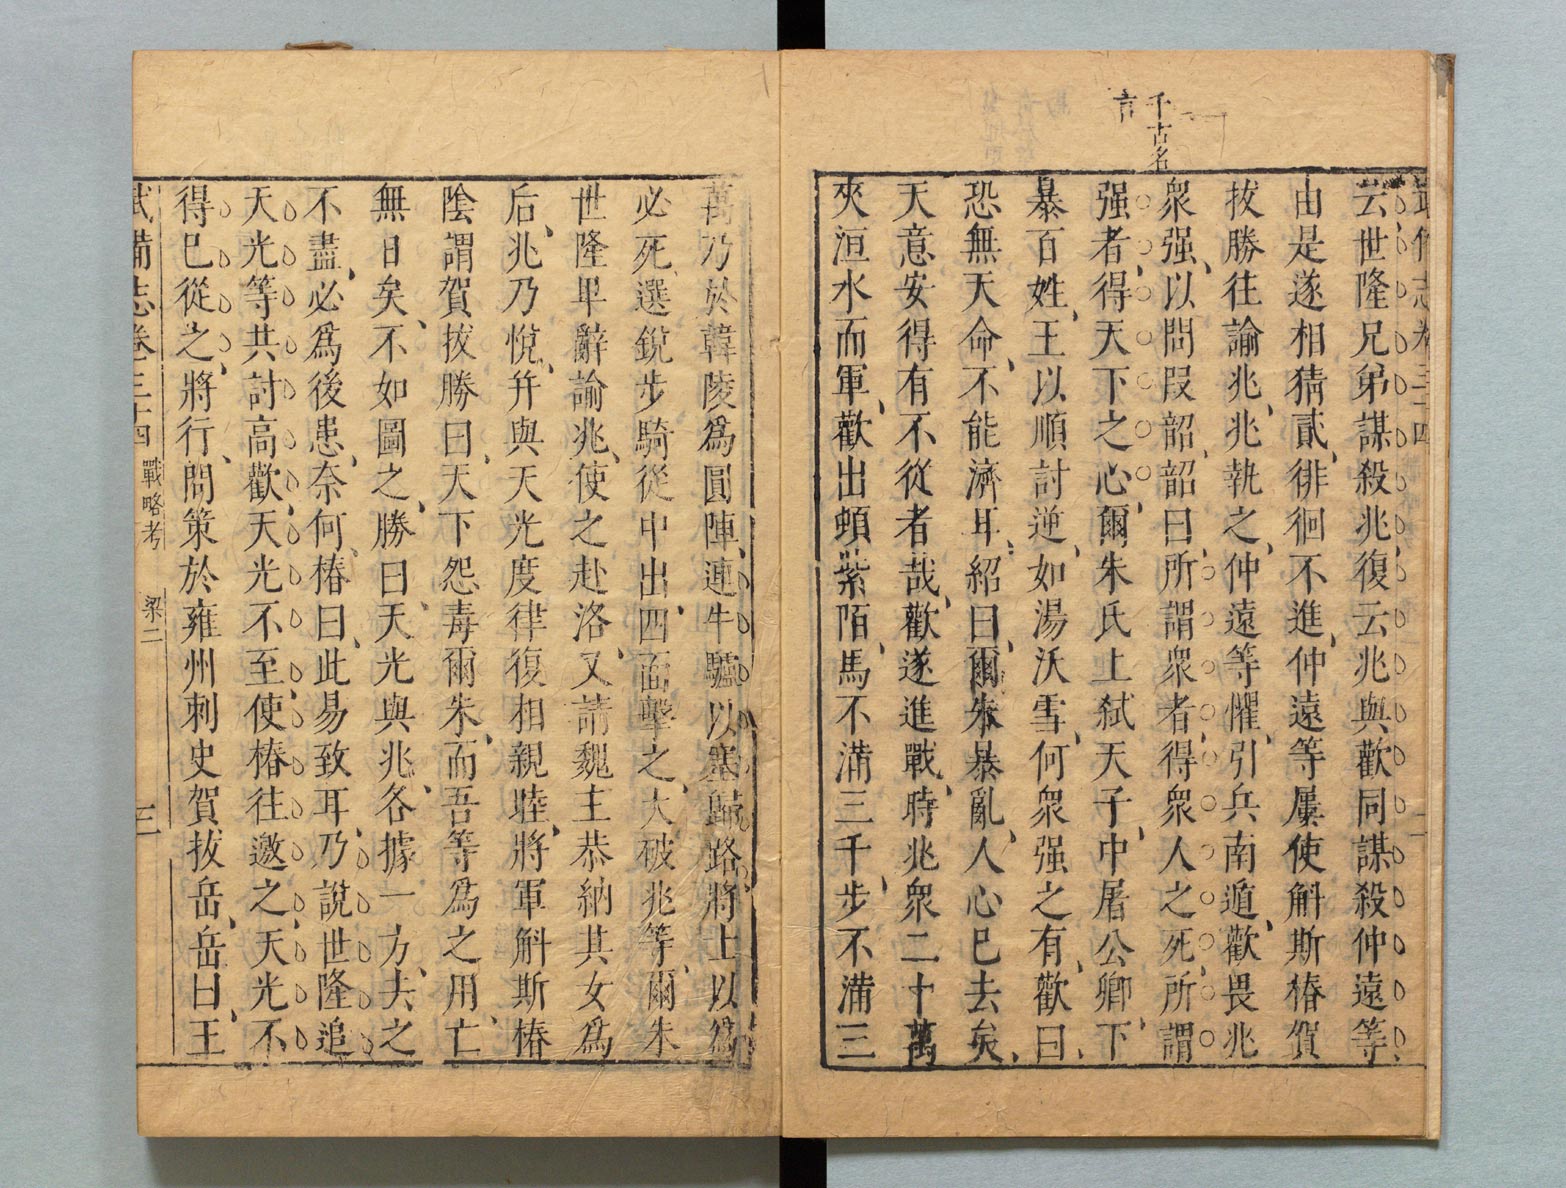 千古名
言
武備志卷三十四
二
云世隆兄弟謀殺兆復云兆與歡同謀殺仲遠等
由是遂相猜貳徘徊不進仲遠等屢使斛斯椿賀
拔勝往諭兆兆執之仲遠等懼引兵南遁歡畏兆
衆强以問段韶韶曰所謂衆者得衆人之死所謂
强者得天下之心爾朱氏上弑天子中屠公卿下
暴百姓王以順討逆如湯沃雪何衆强之有歡曰
恐無天命不能濟耳紹曰爾朱暴亂人心已去矣
天意安得有不從者哉歡遂進戰時兆衆二十萬
夾洹水而軍歡出頓紫陌馬不滿三千步不滿三
萬乃於韓陵爲圓陣連牛驢以塞歸路將士以爲
必死選銳步騎從中出四面擊之大破兆等爾朱
世隆畢辭諭兆使之赴洛又請魏主恭納其女爲
后兆乃悅并與天光度律復相親睦將軍斛斯椿
陰謂賀拔勝曰天下怨毒爾朱而吾等爲之用亡
無日矣不如圖之勝曰天光與兆各據一方去之
不盡必爲後患奈何椿曰此易致耳乃說世隆追
天光等共討高歡天光不至使椿往邀之天光不
得已從之將行問策於雍州刺史賀拔岳岳曰王
武備志卷三十四 戰略考 梁二 三